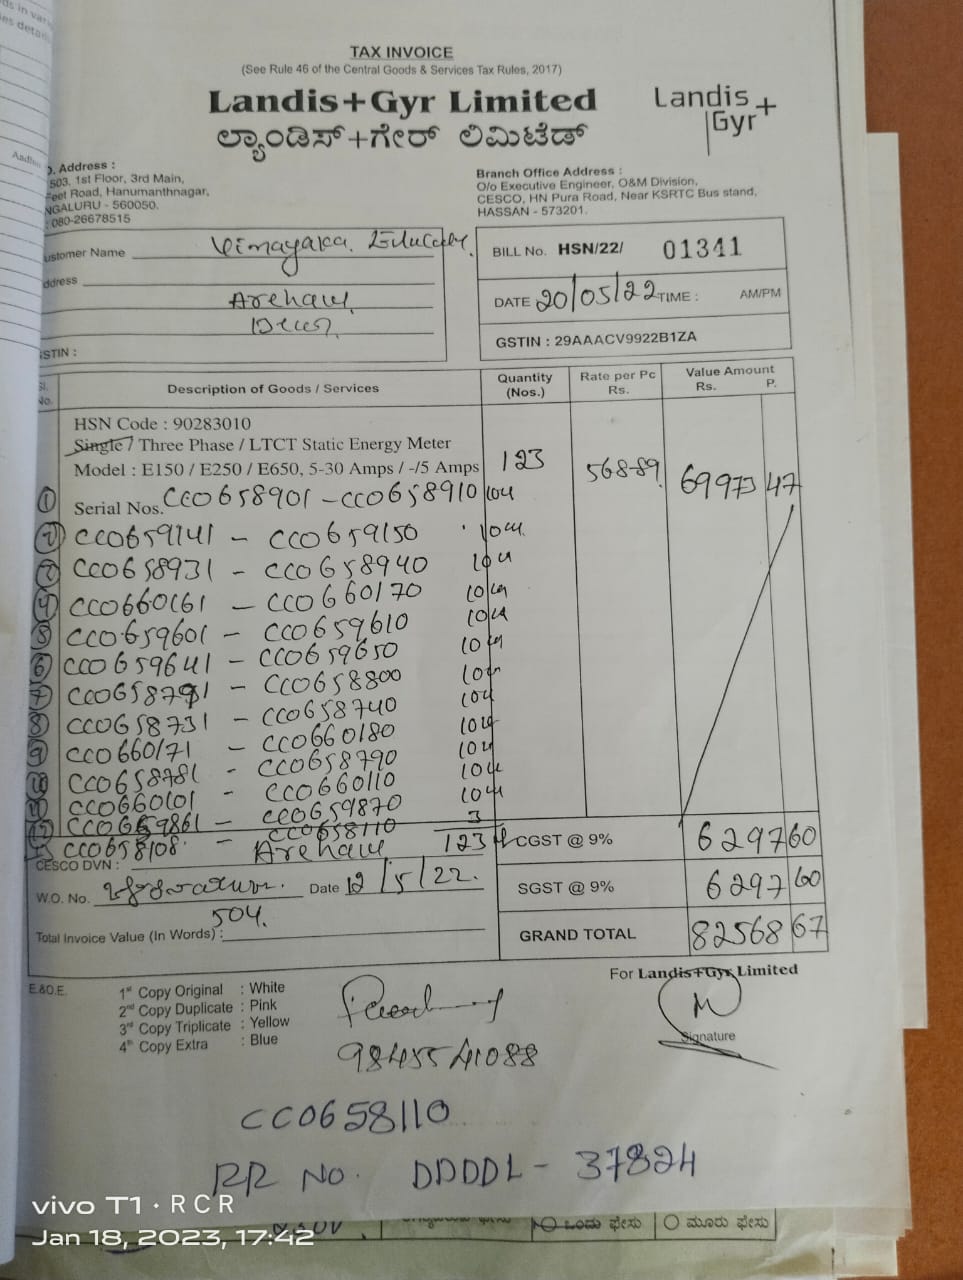 TAX INVOICE
(See Rule 46 of the Central Goods & Services Tax Rules, 2017)
Landis+Gyr Limited
ಲ್ಯಾಂಡಿಸ್+ಗೇರ್ ಲಿಮಿಟೆಡ್
Landis
Gyr+
. Address :
503, 1st Floor, 3rd Main,
eet Road, Hanumanthnagar,
NGALURU - 560050.
: 080-26678515
Branch Office Address :
O/o Executive Engineer, O&M Division,
CESCO, HN Pura Road, Near KSRTC Bus stand,
HASSAN - 573201.
ustomer Name Vinayaka
ddress
Arehalli
STIN :
BILL No. HSN/22/ 01341
DATE 20/05/22 TIME : AM/PM
GSTIN : 29AAACV9922B1ZA
Sl. No. Description of Goods / Services Quantity (Nos.) Rate per Pc Rs. Value Amount Rs. P.
HSN Code : 90283010
Single / Three Phase / LTCT Static Energy Meter
Model : E150 / E250 / E650, 5-30 Amps / -/5 Amps 123 568-89 69973 47
1 Serial Nos. CC0658901 - CC0658910 10
2 CC0659141 - CC0659150 10
3 CC0658931 - CC0658940 10
4 CC0660161 - CC0660170 10
5 CC0659601 - CC0659610 10
6 CC0659641 - CC0659650 10
7 CC0658791 - CC0658800 10
8 CC0658731 - CC0658740 10
9 CC0660171 - CC0660180 10
10 CC0658781 - CC0658790 10
11 CC0660101 - CC0660110 10
12 CC0659861 - CC0659870 10
13 CC0658108 - CC0658110 3
123
CGST @ 9% 6297 60
CESCO DVN : Arehalli
W.O. No. Date 12/5/22.
504.
SGST @ 9% 6297 60
Total Invoice Value (In Words) :
GRAND TOTAL 82568 67
E.&O.E.
1st Copy Original : White
2nd Copy Duplicate : Pink
3rd Copy Triplicate : Yellow
4th Copy Extra : Blue
For Landis+Gyr Limited
Signature
9845541088
CC0658110
RR No. DDDDL - 37824
ಒಂದು ಫೇಸು ಮೂರು ಫೇಸು
vivo T1 · R C R
Jan 18, 2023, 17:42